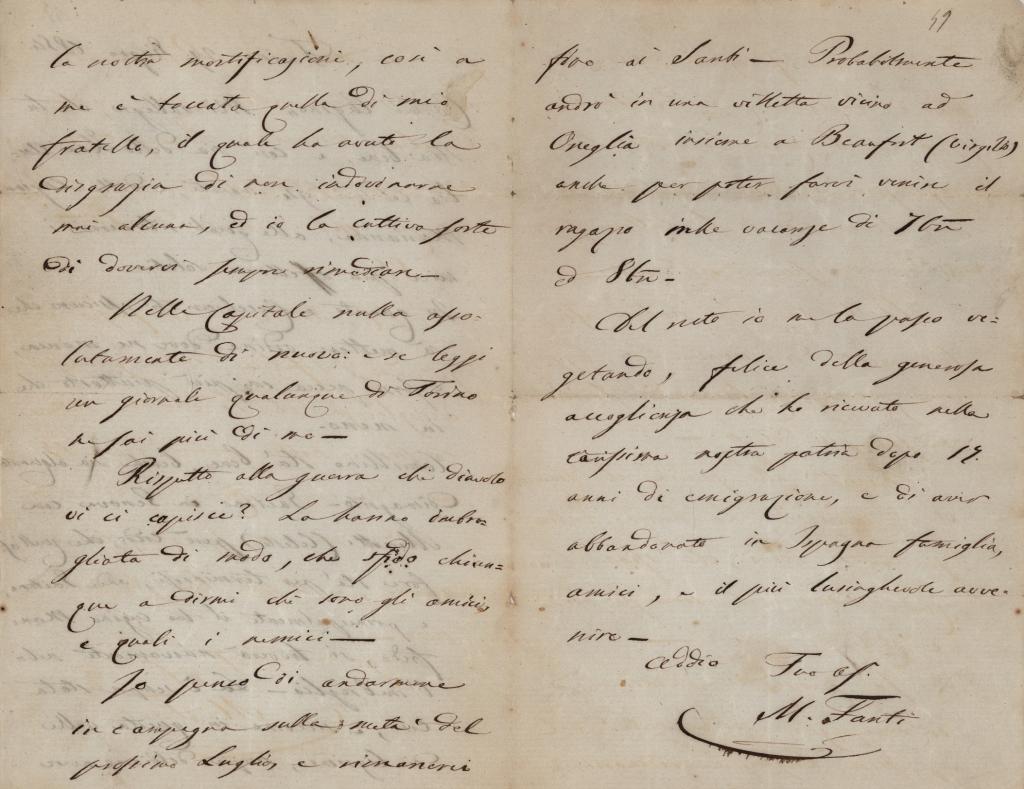 la nostra mortificazione, così a
me è toccata quella di mio
fratello, il quale ha avuto la
disgrazia di non indovinarne
mai alcuna, ed io la cattiva sorte
di dovervi sempre rimediare—
Nelle Capitale nulla asso-
lutamente di nuovo: e se leggi
un giornale qualunque di Torino
ne sai più di me—
Rispetto alla guerra che diavolo
vi ci capisce? La hanno imbro-
gliata di modo, che sfido chiun-
que a dirmi chi sono gli amici,
e quali i nemici—
Io penso di andarmene
in campagna sulla metà del
prossimo Luglio, e rimanervi
59
fino ai Santi— Probabilmente
andrò in una villetta vicino ad
Oneglia insieme a Beaufort (Virgilio)
anche per poter farvi venire il
ragazzo nelle vacanze di 7bre
ed 8bre—
Del resto io me la passo ve=
getando, felice della generosa
accoglienza che ho ricevuto nella
carissima nostra patria dopo 17.
anni di emigrazione, e di aver
abbandonato in Ispagna famiglia,
amici, e il più lusinghevole avve-
nire—
Addio Tuo af.
M. Fanti